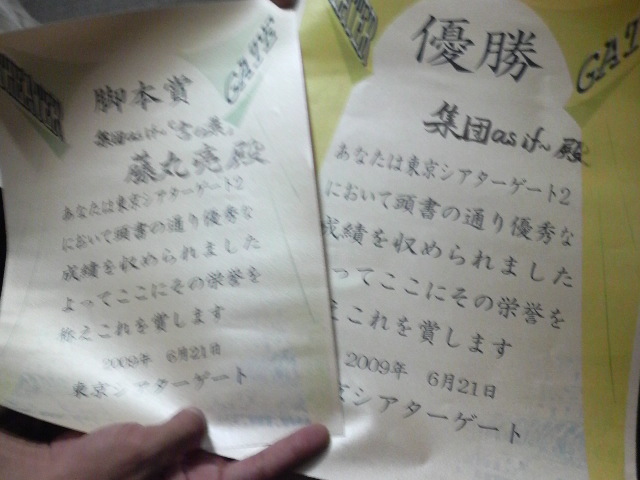 THEATER
GATE
脚本賞
集団as if~『言の葉』
藤丸亮殿
あなたは東京シアターゲート2
において頭書の通り優秀な
成績を収められました
よってここにその栄誉を
称えこれを賞します
2009年 6月21日
東京シアターゲート
THEATER
GATE
優勝
集団as if~殿
あなたは東京シアターゲート2
において頭書の通り優秀な
成績を収められました
ってここにその栄誉を
これを賞します
2009年 6月21日
京シアターゲート